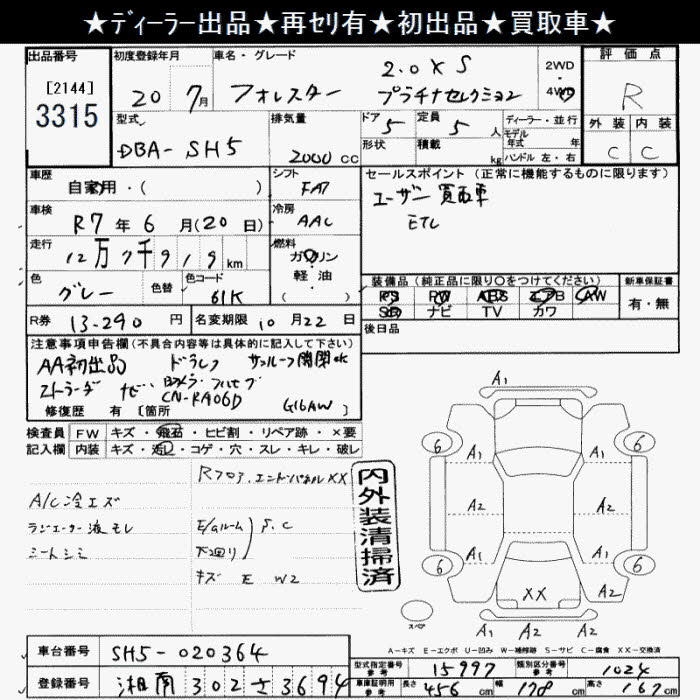 ★ディーラー出品★再セリ有★初出品★買取車★
出品番号
[2144]
3315
初度登録年月
20 7月
車名・グレード
フォレスター
2.0XS
プラチナセレクション
2WD
・
4WD
評価点
R
外装 内装
C C
型式
DBA-SH5
排気量
2000 cc
ドア
5
定員
5 人
形状
積載
kg
ディーラー・並行
モデル
年式 年
ハンドル 左・右
車歴
自家用・( )
シフト
FAT
セールスポイント(正常に機能するものに限ります)
ユーザー買取車
ETC
車検
R7年6月(20日)
冷房
AAC
走行
12万7千919km
燃料
ガソリン
軽・油
( )
色
グレー
色替
色コード
61K
装備品(純正品に限り○をつけてください)
PS PW ABS エアB AW
SR ナビ TV カワ
新車保証書
有・無
R券
13-290円
名変期限
10月22日
後日品
注意事項申告欄(不具合内容等は具体的に記入して下さい)
AA初出品 ドラレコ サンルーフ開閉ok
ストラーダ ナビ・Bカメラ・フルセグ
CN-RA06D
G16AW
修復歴 有[箇所 ]
検査員
記入欄
FW キズ・飛石・ヒビ割・リペア跡・×要
内装 キズ・汚レ・コゲ・穴・スレ・キレ・破レ
Rフロア.エンドパネルXX
A/C冷エズ
ラジエーター液モレ
シートシミ
E/gルーム
下廻り
S.C
キズ E W2
内外装清掃済
A1
6 6
A1 A1
A2 A2
A1 A1
6 6
XX
A2
A1 A2 A2
スペア
A-キズ E-エクボ U-凹み W-補修跡 S-サビ C-腐食 XX-交換済
車台番号
SH5-020364
登録番号
湘南302さ3694
型式指定番号
参考
15997
類別区分番号
参考
1024
車庫証明用
参考
長さ 456cm
幅 178cm
高さ 167cm